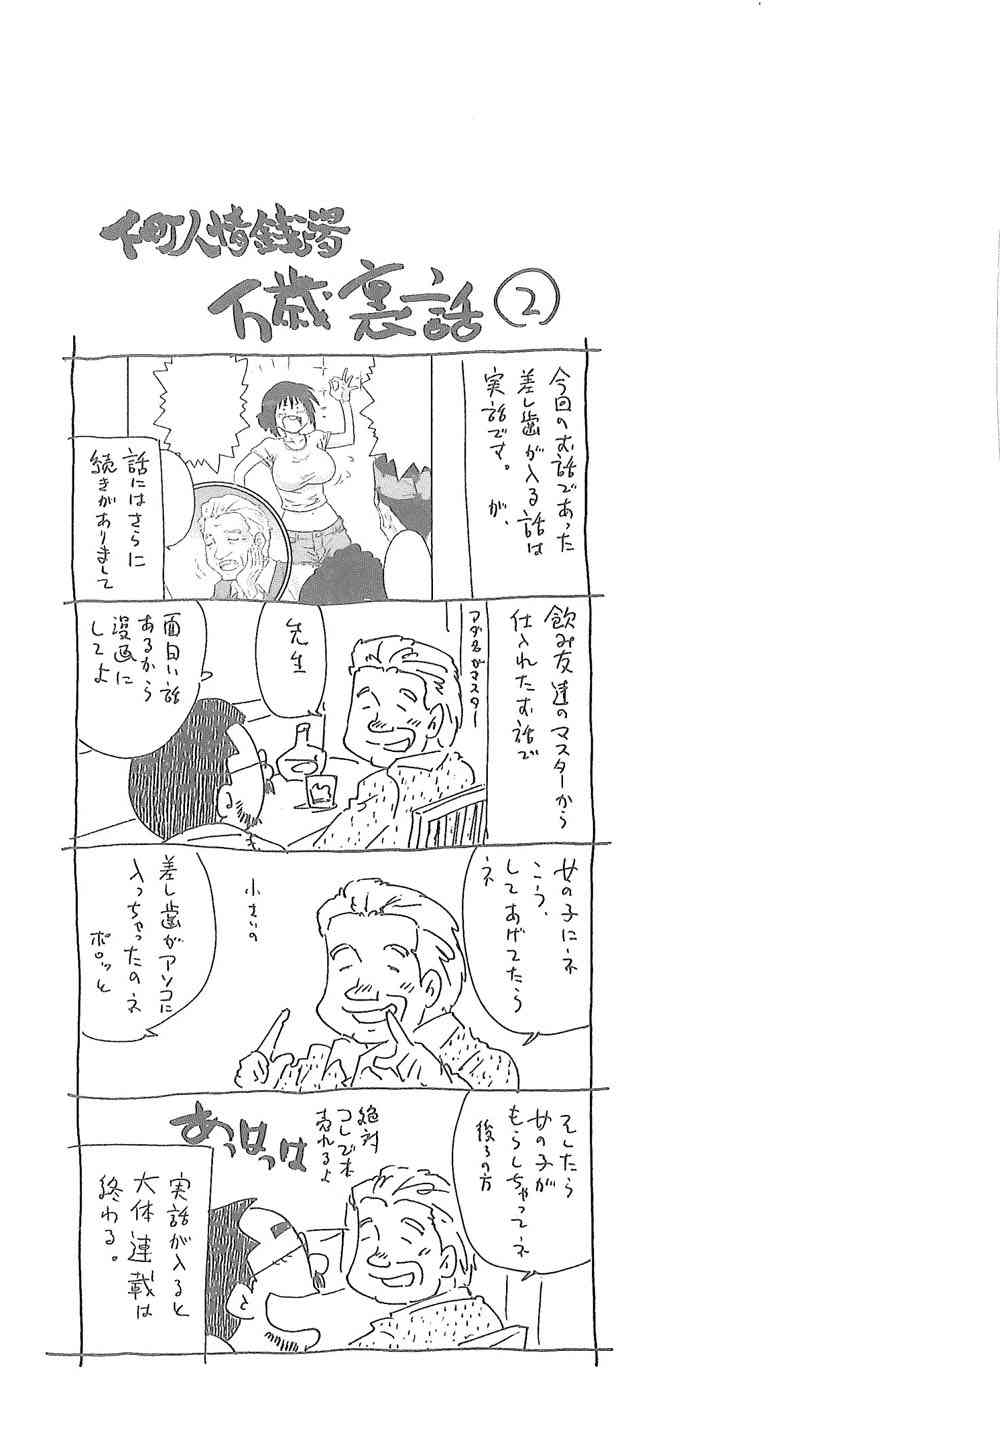 下町人情銭湯
万歳 裏話②
今回のお話であった
差し歯が入る話は
実話です。が、
話にはさらに
続きがありまして
飲み友達のマスターから
仕入れたお話で
アダ名がマスター
先生
面白い話
あるから
漫画に
してよ
女の子にネ
こう、
してあげてたら
ネ
小さいの
差し歯がアソコに
入っちゃったのネ
ポロッと
そしたら
女の子が
もらしちゃってネ
後ろの方
絶対
コレで本
売れるよ
あっはっは
実話が入ると
大体連載は
終わる。